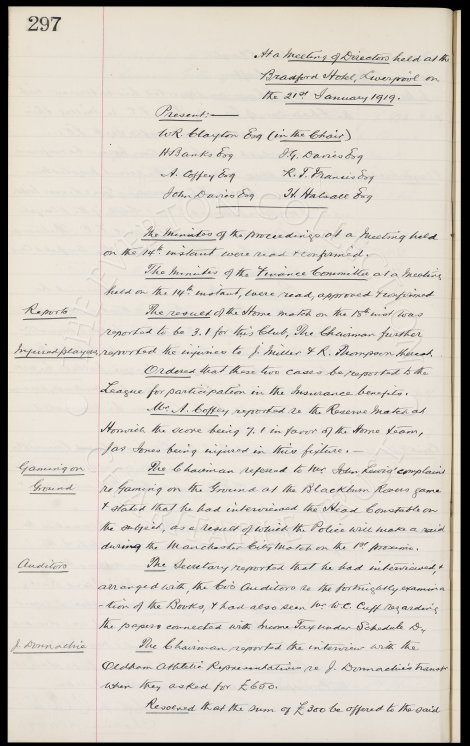 297
At a Meeting of Directors held at the
Bradford Hotel, Liverpool on
the 21st January 1919.
Present:—
W.R. Clayton Esq (in the Chair)
H Banks Esq J.G. Davies Esq
A. Coffey Esq R.T. Francis Esq
John Davies Esq H. Halsall Esq
The Minutes of the proceedings at a Meeting held
on the 14th instant were read & confirmed.
The Minutes of the Finance Committee at a Meeting
held on the 14th instant, were read, approved & confirmed
Reports The result of the Home match on the 18th inst was
reported to be 3.1 for this Club, The Chairman further
Injured players reported the injuries to J. Miller & R. Thompson thereat.
Ordered that these two cases be reported to the
League for participation in the Insurance benefits.
Mr. A. Coffey reported re the Reserve Match at
Horwich the score being 7.1 in favor of the Home team,
Jas Jones being injured in this fixture.—
Gaming on The Chairman refered to Mr. John Lewis' complaint
Ground re Gaming on the Ground at the Blackburn Rovers game
& stated that he had interviewed the Head Constable on
the subject, as a result of which the Police will make a raid
during the Manchester City Match on the 1st proximo.
Auditors The Secretary reported that he had interviewed, &
arranged with, the Co's Auditors re the fortnightly examina
tion of the Books, & had also seen Mr W.C. Cuff regarding
the papers connected with Income Tax under Schedule D.
J. Donnachie The Chairman reported the interview with the
Oldham Athletic Representatives re J. Donnachie's Transfer
when they asked for £650.
Resolved that the sum of £300 be offered to the said